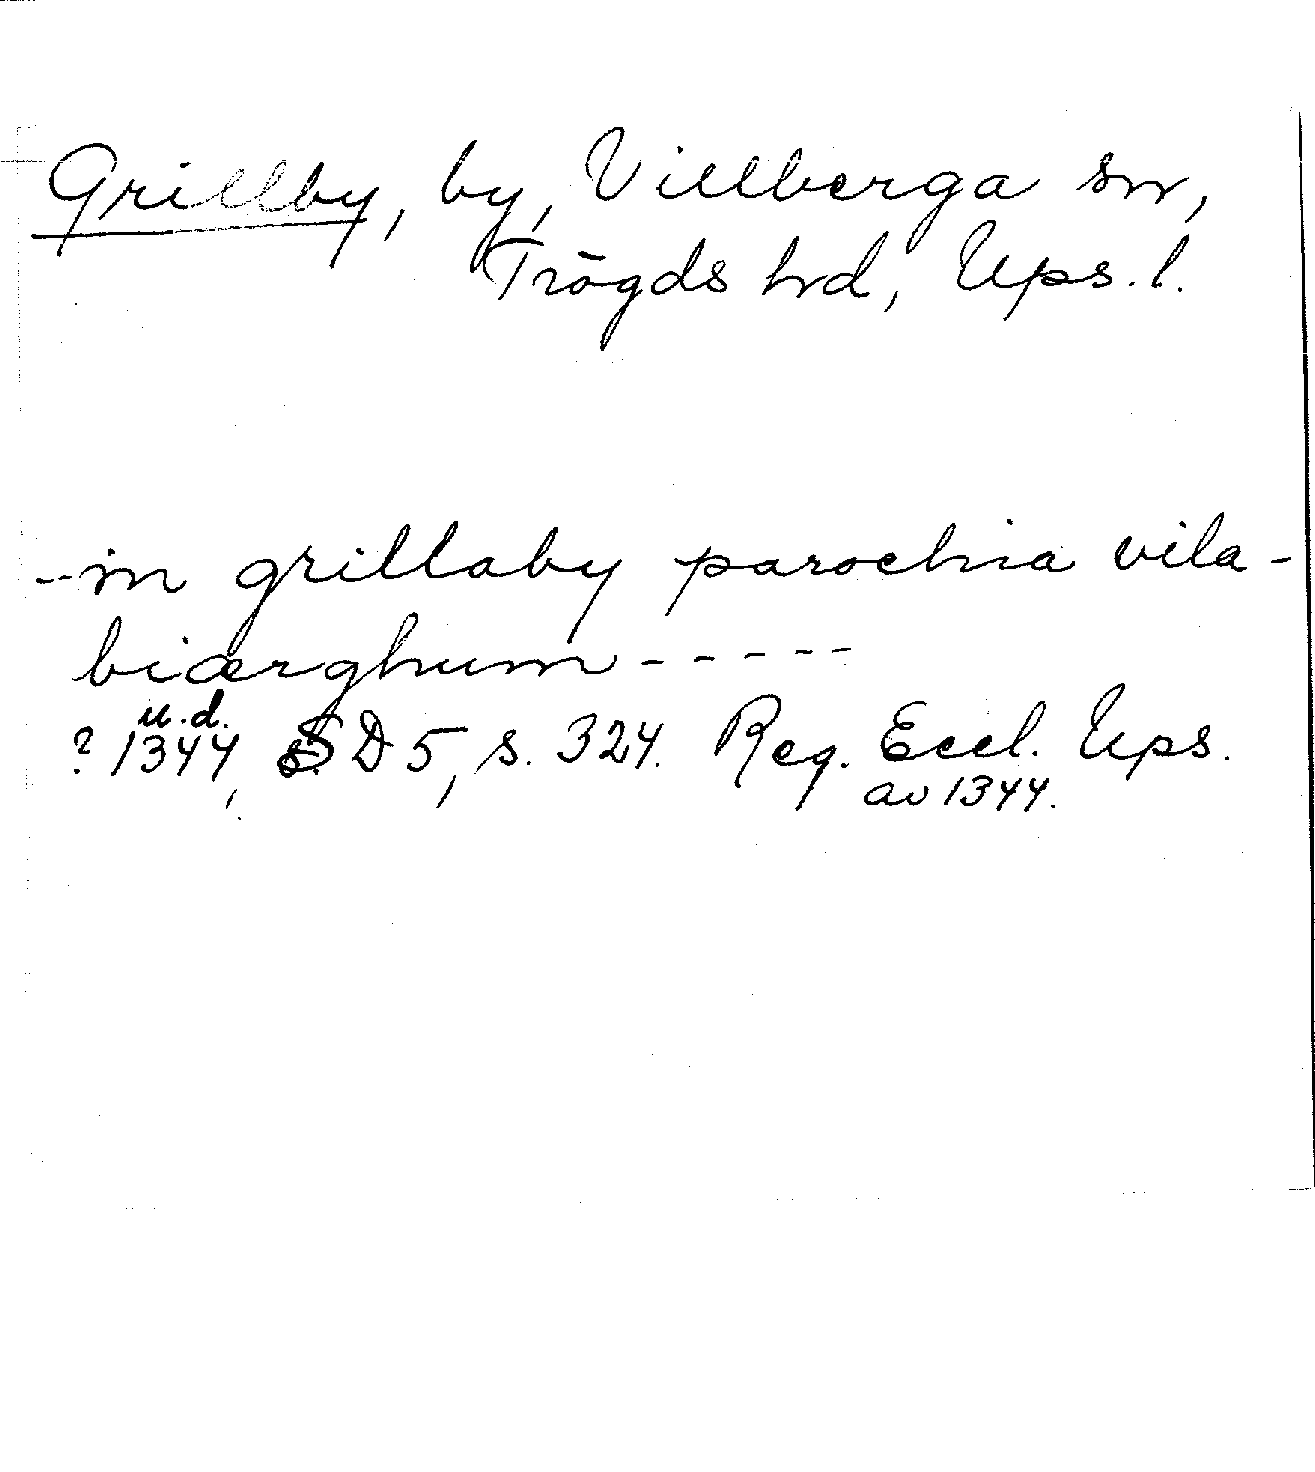 Grillby, by, Villberga sn,
Trögds hd, Ups. l.
--in grillaby parochia vila-
biærghum-----
u.d.
? 1344, SD 5, s. 324. Reg. Eccl. Ups.
av 1344.